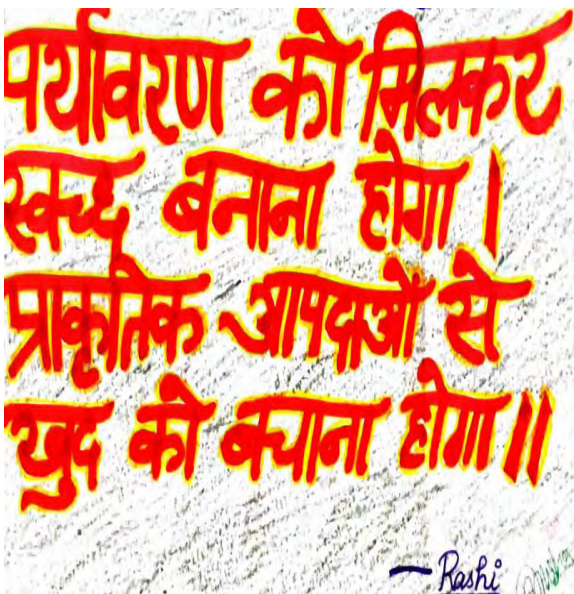 पर्यावरण को मिलकर
स्वच्छ बनाना होगा ।
प्राकृतिक आपदाओं से
खुद को बचाना होगा ॥
— Rashi